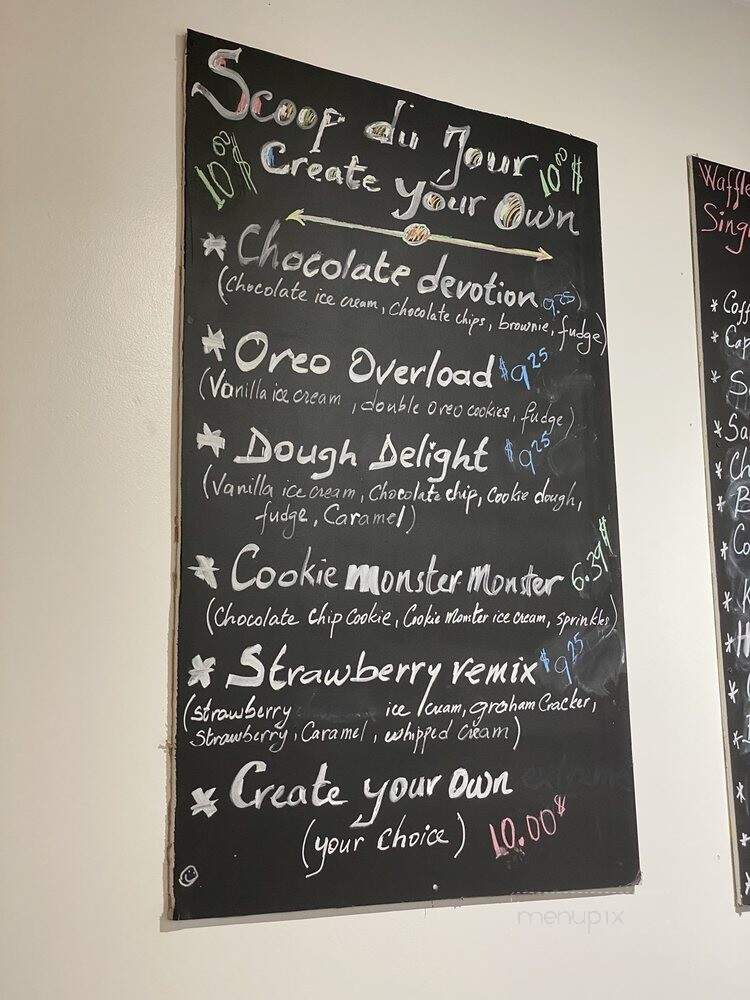 Scoop du Jour
10.00$ Create your Own 10.00$
* Chocolate devotion 9.25
(Chocolate ice cream, Chocolate chips, brownie, fudge)
* Oreo Overload $9.25
(Vanilla ice cream, double Oreo cookies, fudge)
* Dough Delight $9.25
(Vanilla ice cream, Chocolate chip, Cookie dough,
fudge, Caramel)
* Cookie Monster Monster 6.39$
(Chocolate chip Cookie, Cookie Monster ice cream, sprinkles)
* Strawberry remix $9.25
(strawberry ice cream, graham Cracker,
Strawberry, Caramel, whipped cream)
* Create your Own
(your choice) 10.00$
Waffle
menupix